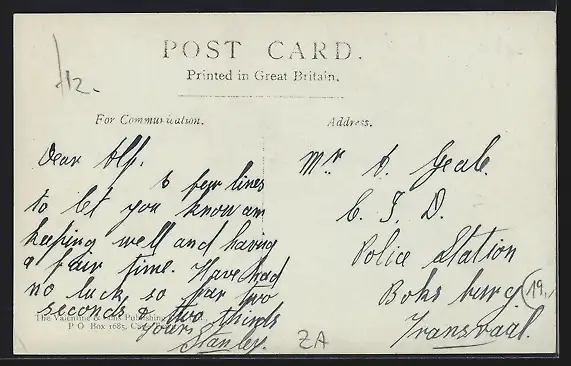 /12.
POST CARD.
Printed in Great Britain.
For Communication.
Address.
Dear Alf.
A few lines
to let you know am
keeping well and having
a fair time. Have had
no luck so far two
seconds & two thirds
yours
Stanley.
Mr. A. Geal.
C. I. D.
Police Station
Boksburg
Transvaal.
19.
The Valentine & Sons Publishing
P O Box 1685, Cape
ZA